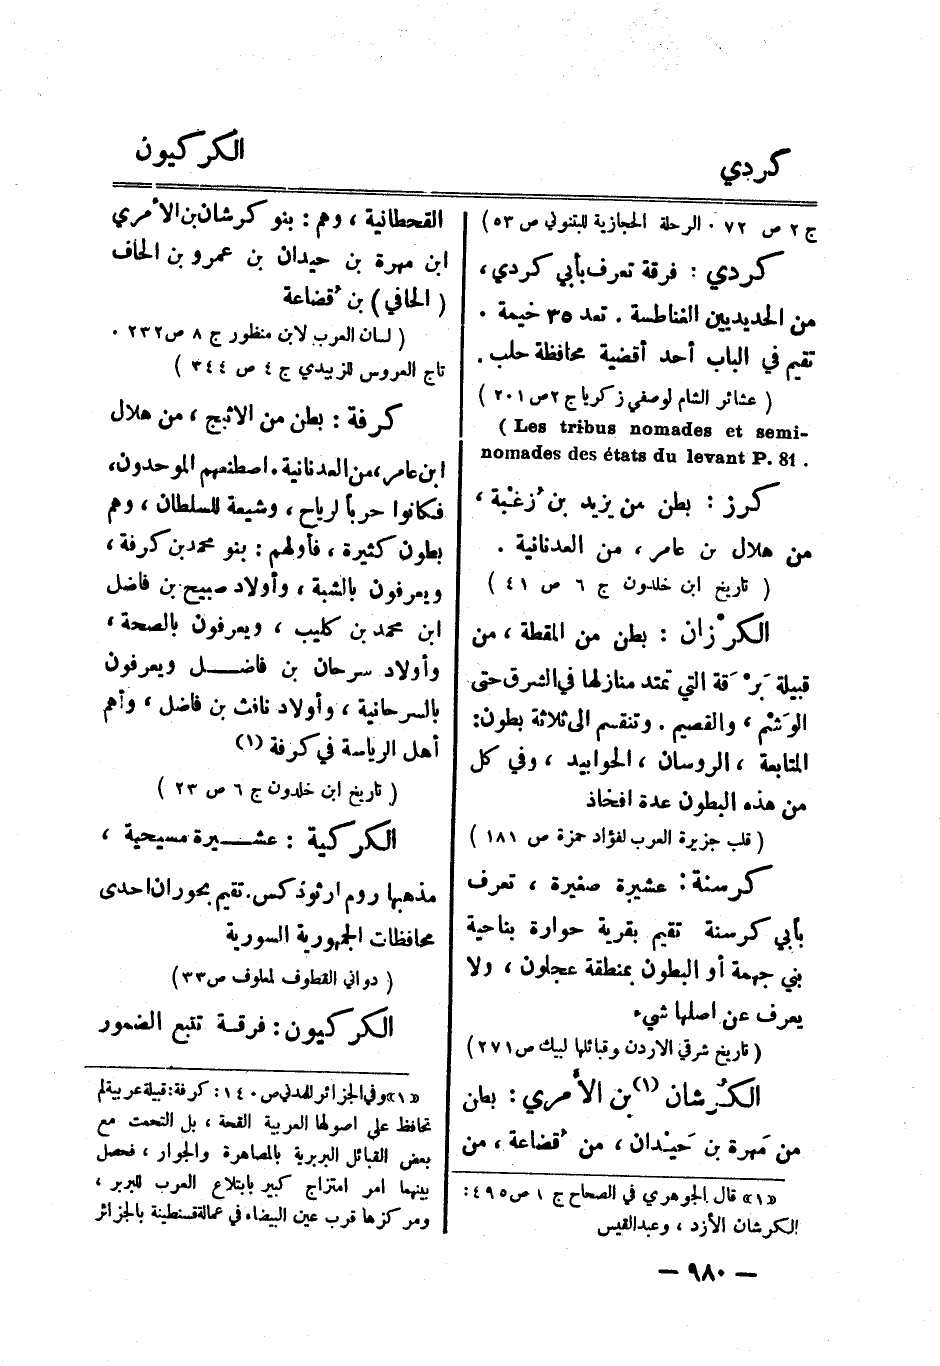 كردي
الكركيون
ج ٢ ص ٧٢ . الرحلة الحجازية للبتنوني ص ٥٣ )
كردي : فرقة تعرف بأبي كردي ،
من الحديديين الغناطسة . تعد ٣٥ خيمة .
تقيم في الباب أحد أقضية محافظة حلب .
( عشائر الشام لوصفي زكريا ج ٢ ص ٢٠١ )
( Les tribus nomades et semi-
nomades des états du levant P. 81 .
كرز : بطن من يزيد بن ُزغبة ،
من هلال بن عامر ، من العدنانية .
( تاريخ ابن خلدون ج ٦ ص ٤١ )
الكرْزان : بطن من المقطة ، من
قبيلة َبرْ َقة التي تمتد منازلها في الشرق حتى
الوَشْم ، والقصيم . وتنقسم الى ثلاثة بطون :
المتابعة ، الروسان ، الحوابيد ، وفي كل
من هذه البطون عدة افخاذ
( قلب جزيرة العرب لفؤاد حمزة ص ١٨١ )
كرسنة : عشيرة صغيرة ، تعرف
بأبي كرسنة تقيم بقرية حوارة بناحية
بني جهمة أو البطون بمنطقة عجلون ، ولا
يعرف عن اصلها شيء
( تاريخ شرقي الاردن وقبائلها لبيك ص ٢٧١ )
الكُرشان (١) بن الأمري : بطن
من مَهرة بن حَيْدان ، من ُقضاعة ، من
«١» قال الجوهري في الصحاح ج ١ ص ٤٩٥ :
الكرشان الأزد ، وعبدالقيس
القحطانية ، وهم : بنو كرشان بن الأمري
ابن مهرة بن حيدان بن عمرو بن الحاف
( الحافي ) بن ُقضاعة
( لسان العرب لابن منظور ج ٨ ص ٢٣٢ .
تاج العروس للزبيدي ج ٤ ص ٣٤٤ )
كرفة : بطن من الاثبج ، من هلال
ابن عامر ، من العدنانية . اصطنعهم الموحدون ،
فكانوا حرباً لرياح ، وشيعة للسلطان ، وهم
بطون كثيرة ، فأولهم : بنو محمد بن كرفة ،
ويعرفون بالشبة ، وأولاد صبيح بن فاضل
ابن محمد بن كليب ، ويعرفون بالصحة ،
وأولاد سرحان بن فاضل ويعرفون
بالسرحانية ، وأولاد نافث بن فاضل ، وأهم
أهل الرياسة في كرفة (١)
( تاريخ ابن خلدون ج ٦ ص ٢٣ )
الكركية : عشيرة مسيحية ،
مذهبها روم ارثوذكس . تقيم بحوران احدى
محافظات الجمهورية السورية
( دواني القطوف لمعلوف ص ٣٣ )
الكركيون : فرقة تتبع الضمور
«١» وفي الجزائر للمدني ص ١٤٠ : كرفة : قبيلة عربية لم
تحافظ على اصولها العربية القحة ، بل التحمت مع
بعض القبائل البربرية بالمصاهرة والجوار ، فحصل
بينهما امر امتزاج كبير بابتلاع العرب للبربر ،
ومركزها قرب عين البيضاء في عمالة قسنطينة بالجزائر
— ٩٨٠ —